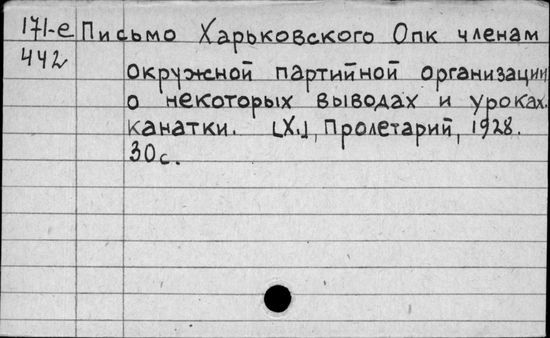 171-е Письмо Харьковского Опк членам
442
окружной партийной организации
о некоторых выводах и уроках.
канатки. [Х.], Пролетарий, 1928.
30с.